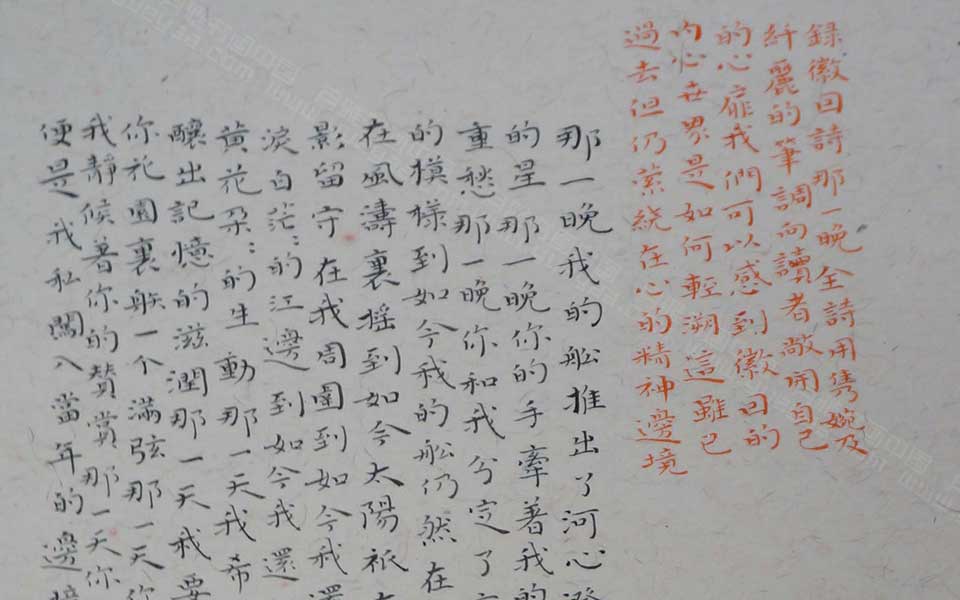 錄徽回詩那一晚全詩用雋婉及
纤麗的筆調向讀者敞開自己
的心扉我們可以感到徽回的
內心世界是如何輕溯這雖已
過去但仍縈繞在心的精神邊境
那一晚我的船推出了河心澄
的星那一晚你的手牽著我的
重愁那一晚你和我分定了
的模樣到如今我的船仍然在
在風濤裏搖到如今太陽祇
影留守在我周圍到如今我還
淚白茫:的江邊到如今我還
黃花朵:的生動那一天我希
釀出記憶的滋潤那一天我要
你花園裏射一个滿弦那一天你
我靜候著你的贊賞那一天你
便是我私闖入當年的邊境